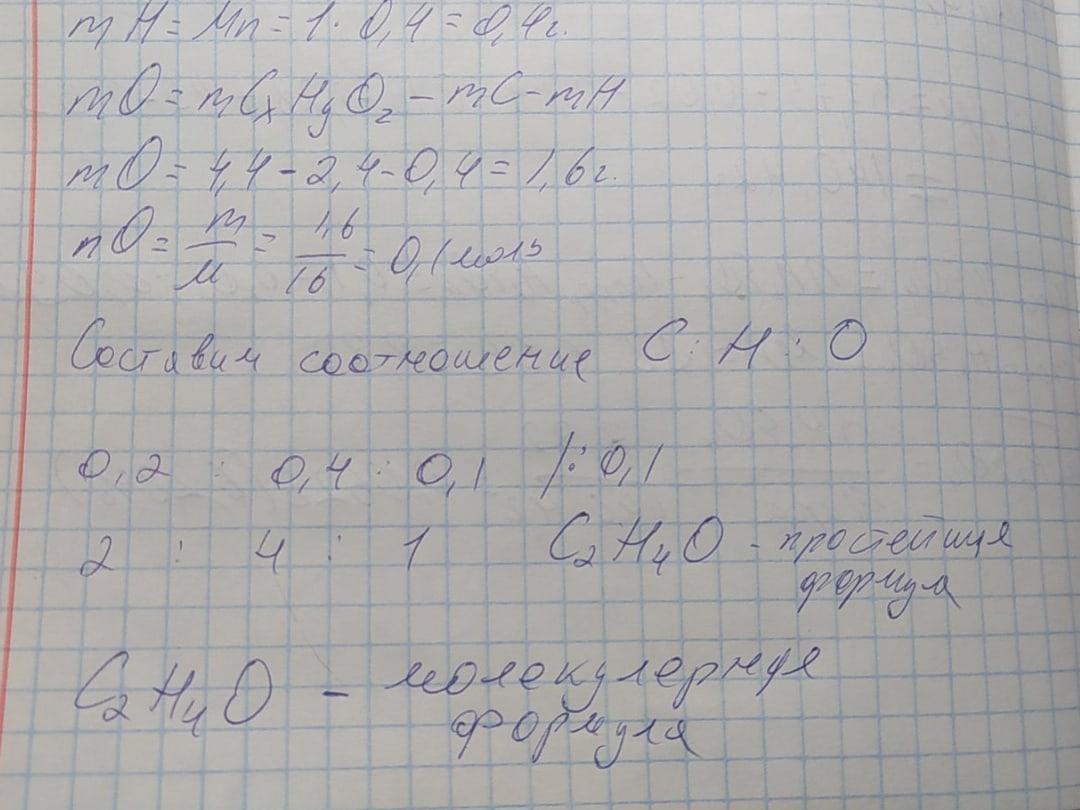 mH = Mn = 1 · 0,4 = 0,4г.
mO = mCxHyOz - mC - mH
mO = 4,4 - 2,4 - 0,4 = 1,6г.
nO = m/M = 1,6/16 = 0,1 моль
Составим соотношение C : H : O
0,2 : 0,4 : 0,1 /: 0,1
2 : 4 : 1 C₂H₄O - простейшая
формула
C₂H₄O - молекулярная
формула